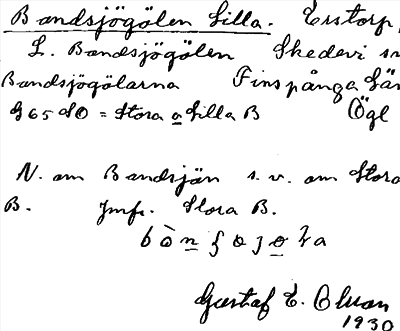 Bandsjögölen Lilla. Esstorp,
L. Bandsjögölen Skedevi sn
Bandsjögölarna Finspånga län
G 65 SO = Stora a Lilla B Ögl
N. om Bandsjön s.v. om Stora
B. Jmfr. Stora B.
Gustaf E. Olsson
1930